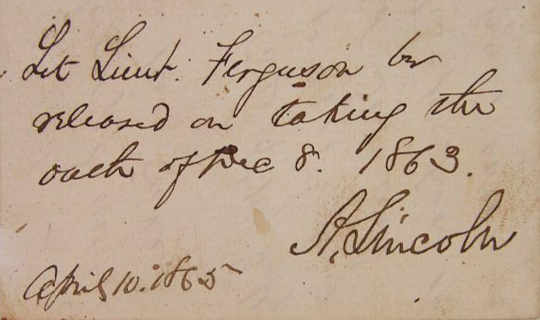 Let Lieut. Ferguson be
released on taking the
oath of Dec 8. 1863.
A. Lincoln
April 10. 1865